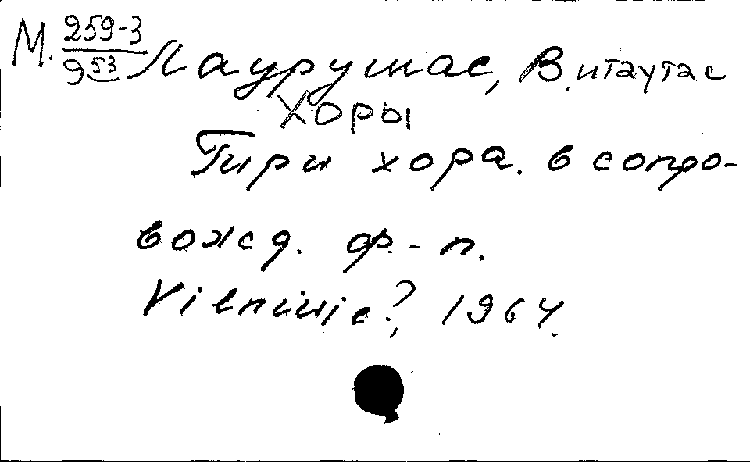 М. 259-3
9 53 Лаурушас, Витаутас
Хоры
Три хора. в сопро-
вожд. ф-п.
Vilnius?, 1964.